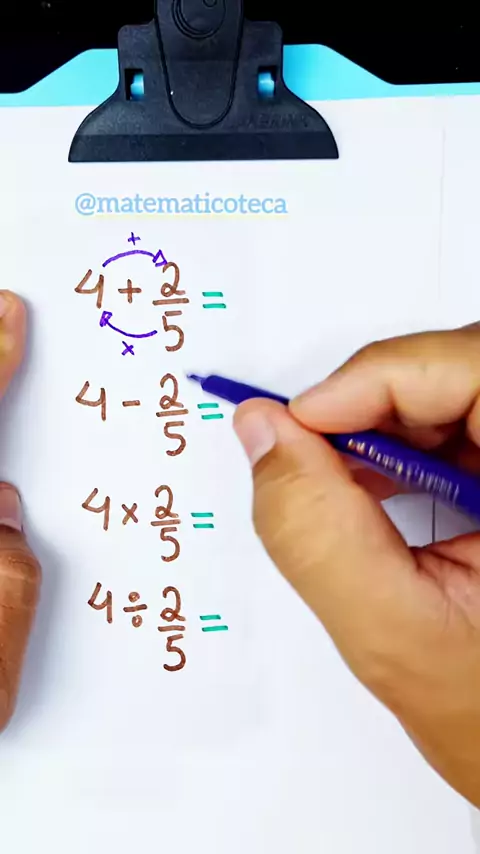 @matematicoteca
+
4 + 2/5 =
x
4 - 2/5 =
4 × 2/5 =
4 ÷ 2/5 =